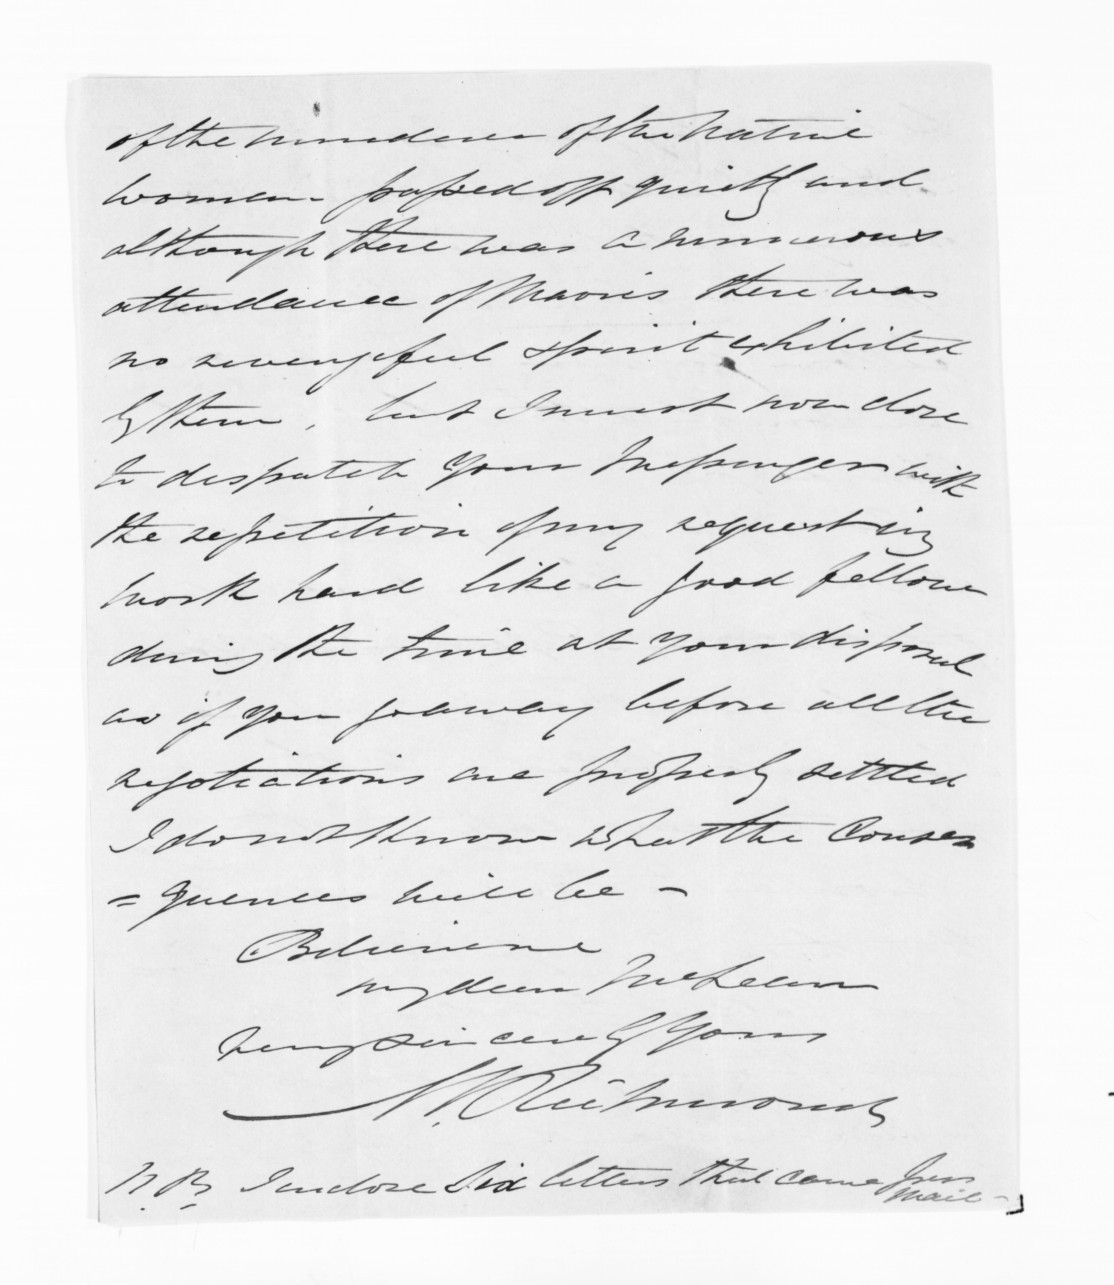 of the murderer of the Native
women - passed off quietly and
although there was a numerous
attendance of Maoris there was
no revengeful spirit exhibited
by them, but I must now close
to despatch your Messenger with
the repetition of my request viz
work hard like a good fellow
during the time at your disposal
as if you go away before all the
negotiations are properly settled
I do not know what the conse
=quences will be -
Believe me
my dear McLean
very sincerely yours
M. Richmond
N.B. I enclose six letters that came
mail -